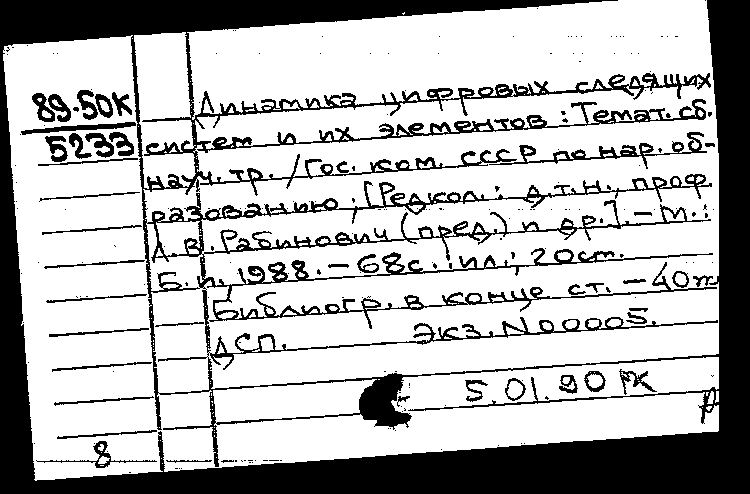 89-50К
5233
Динамика цифровых следящих
систем и их элементов : Темат. сб.
науч. тр. / Гос. ком. СССР по нар. об-
разованию ; [Редкол. : д.т.н., проф.
Л. В. Рабинович (пред.) и др.]. - М. :
Б. и., 1988. - 68с. : ил. ; 20см.
Библиогр. в конце ст. - 40к
ДСП. Экз. N00005.
5.01.90 РК
8